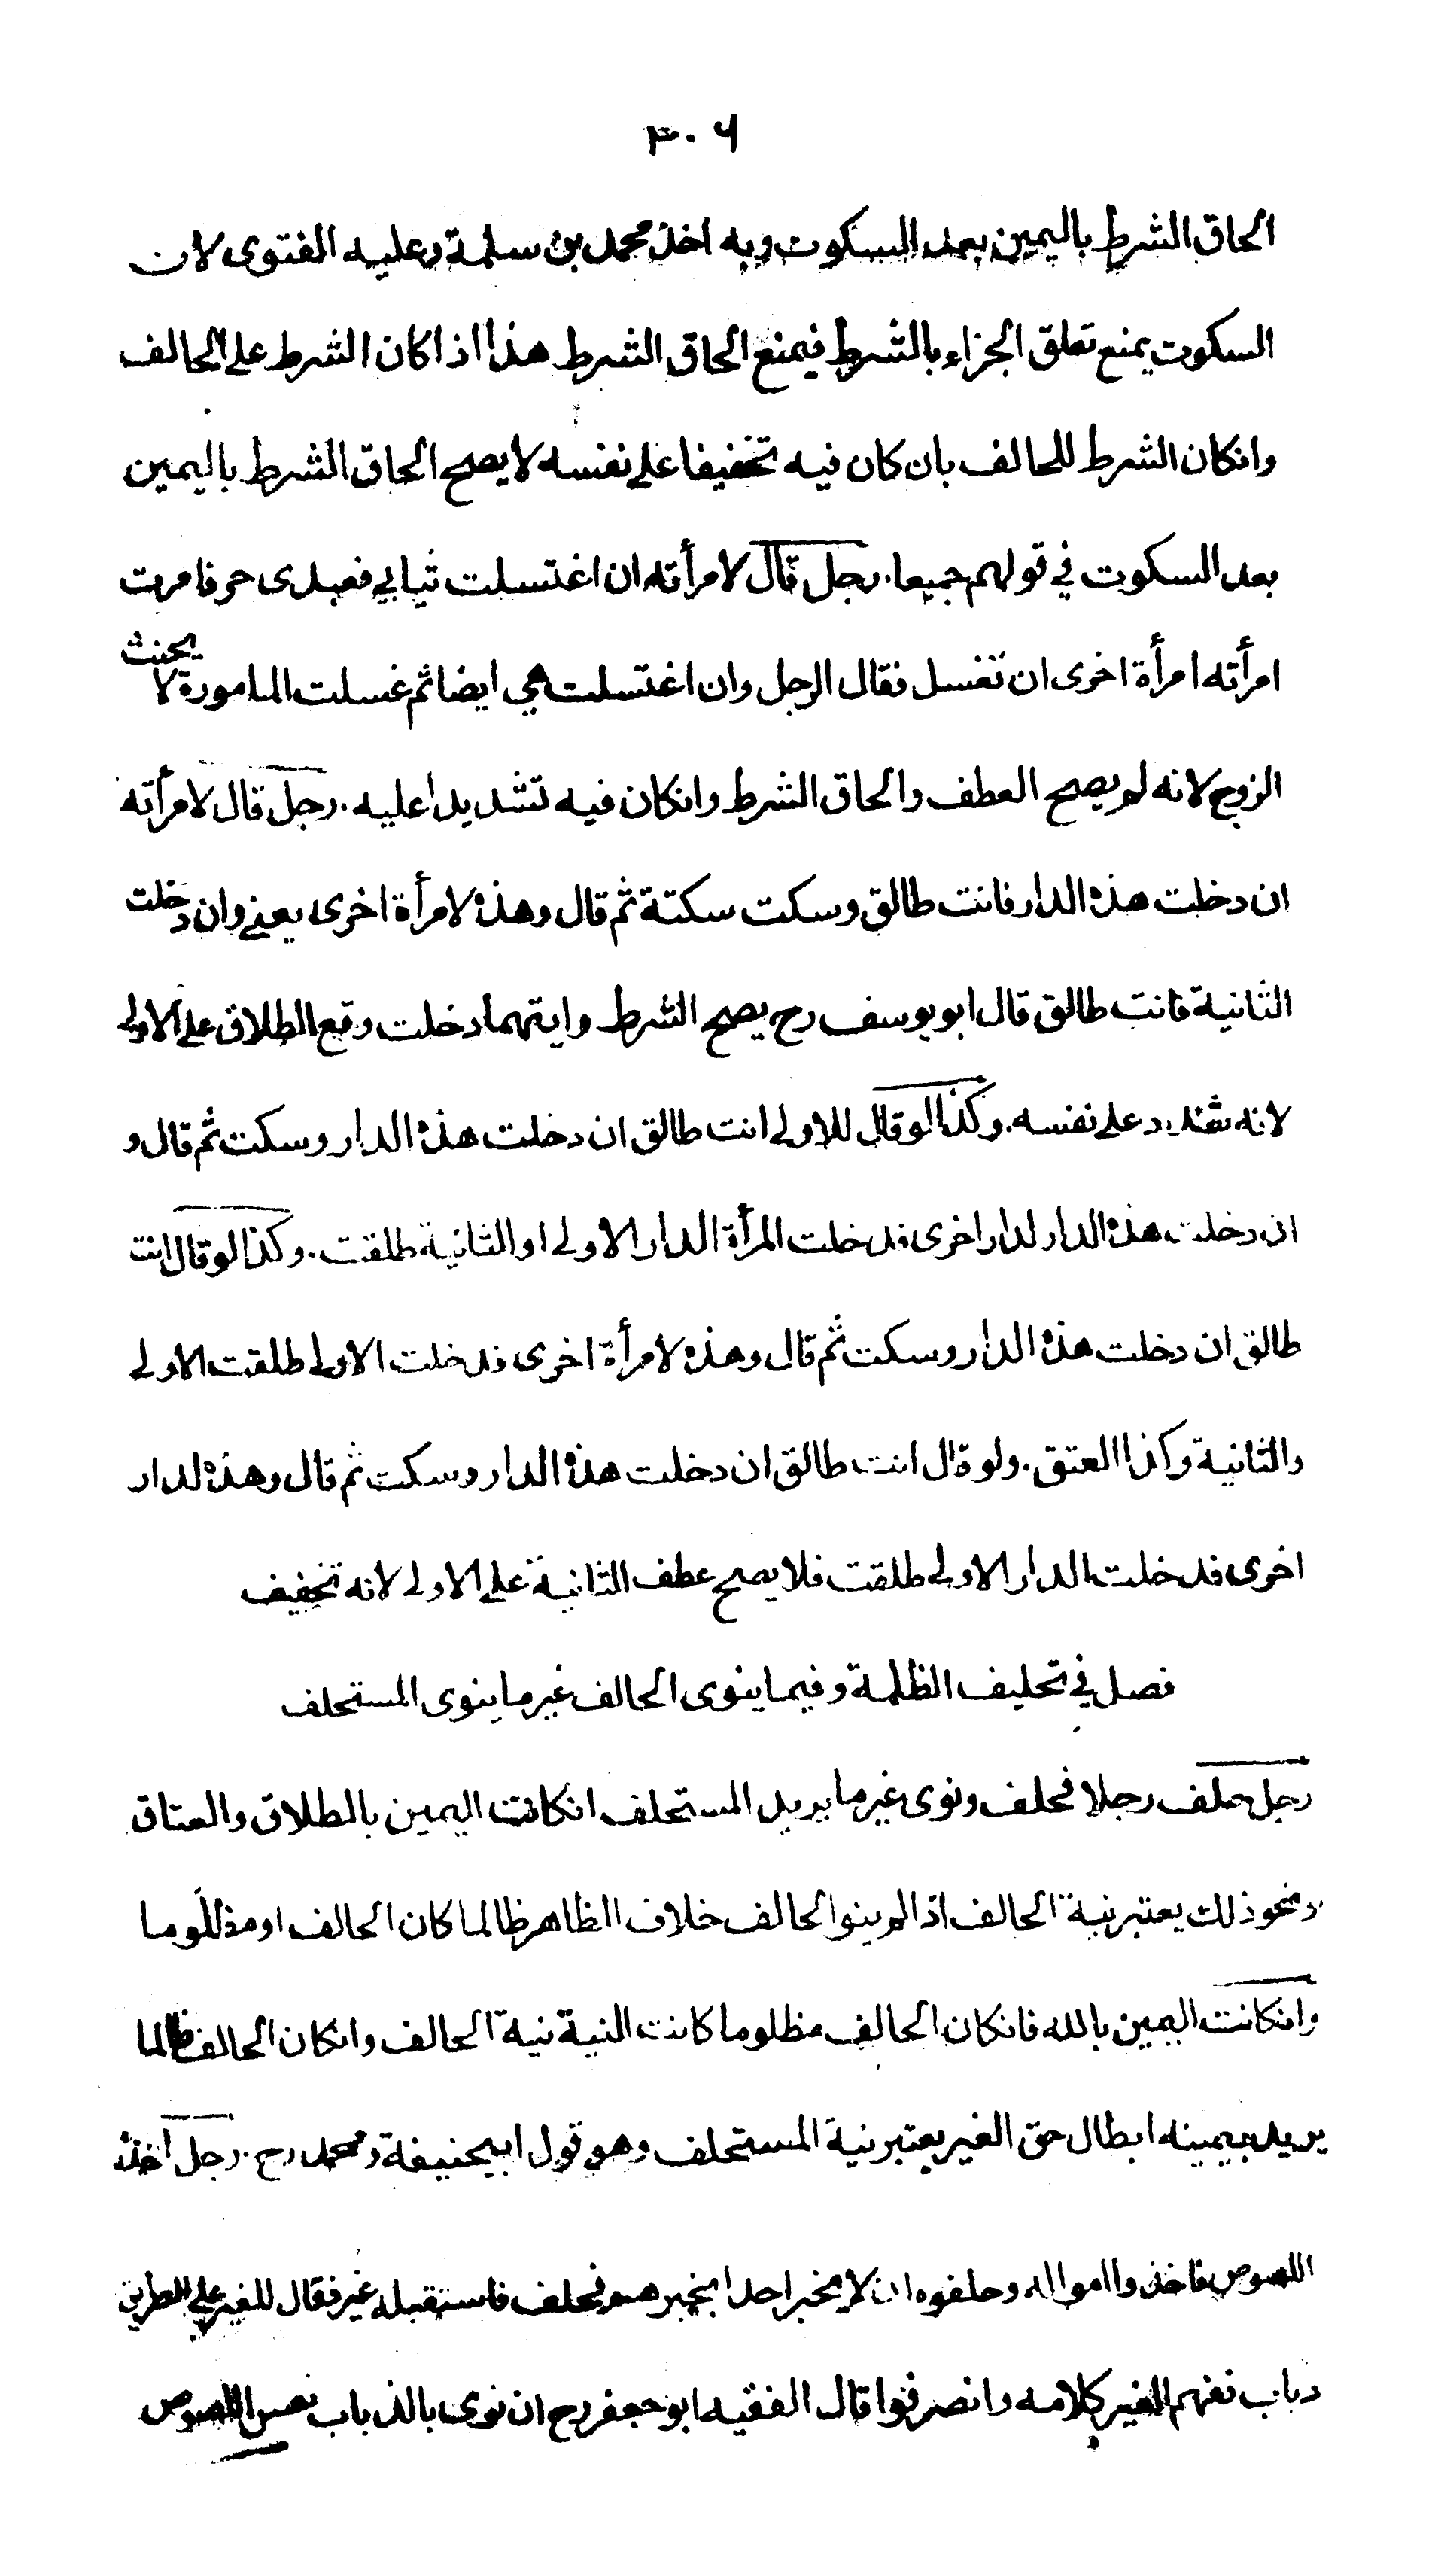 ٣٠٦
الحاق الشرط باليمين بعد السكوت وبه اخذ محمد بن سلمة وعليه الفتوى لان
السكوت يمنع تعلق الجزاء بالشرط فيمنع الحاق الشرط هذا اذا كان الشرط على الحالف
وانكان الشرط للحالف بان كان فيه تخفيفا على نفسه لا يصح الحاق الشرط باليمين
بعد السكوت في قولهم جميعا. رجل قال لامرأته ان اغتسلت ثيابي فعبدى حر فامرت
امرأته امرأة اخرى ان تغسل فقال الرجل وان اغتسلت هي ايضا ثم غسلت المامورة لا يحنث
الزوج لانه لم يصح العطف والحاق الشرط وانكان فيه تشديدا عليه. رجل قال لامرأته
ان دخلت هذه الدار فانت طالق وسكت سكتة ثم قال وهذه لامرأة اخرى يعني وان دخلت
الثانية فانت طالق قال ابو يوسف رح يصح الشرط وايتهما دخلت وقع الطلاق على الاولى
لانه شدد على نفسه. وكذا لو قال للاولى انت طالق ان دخلت هذه الدار وسكت ثم قال و
ان دخلت هذه الدار لدار اخرى فدخلت المرأة الدار الاولى او الثانية طلقت. وكذا لو قال انت
طالق ان دخلت هذه الدار وسكت ثم قال وهذه لامرأة اخرى فدخلت الاولى طلقت الاولى
والثانية وكذا العتق. ولو قال انت طالق ان دخلت هذه الدار وسكت ثم قال وهذه لدار
اخرى فدخلت الدار الاولى طلقت فلا يصح عطف الثانية على الاولى لانه تخفيف
فصل في تحليف الظلمة وفيما ينوى الحالف غير ما ينوى المستحلف
رجل حلف رجلا فحلف ونوى غير ما يريد المستحلف انكانت اليمين بالطلاق والعتاق
ونحو ذلك يعتبر نية الحالف اذا لم ينو الحالف خلاف الظاهر ظالما كان الحالف او مظلوما
وانكانت اليمين بالله فانكان الحالف مظلوما كانت النية نية الحالف وانكان الحالف ظالما
يريد بيمينه ابطال حق الغير يعتبر نية المستحلف وهو قول ابيحنيفة ومحمد رح. رجل اخذه
اللصوص فاخذوا امواله وحلفوه ان لا يخبر احدا بخبرهم فحلف فاستقبله غير فقال للغير على الطريق
ذباب ففهم الغير كلامه وانصرفوا قال الفقيه ابو جعفر رح ان نوى بالذباب نفس اللصوص